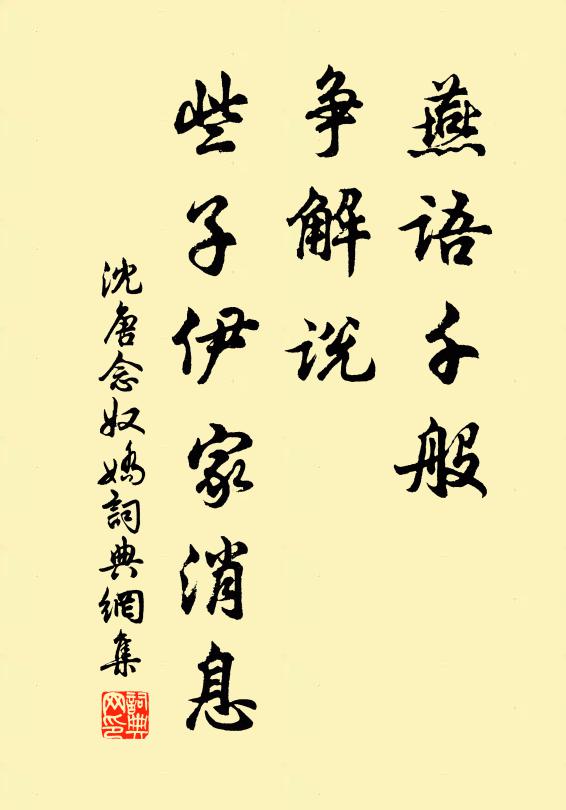 燕语千般
争解说
些子伊家消息
沈唐念奴嬌詞典網集
詞典网印